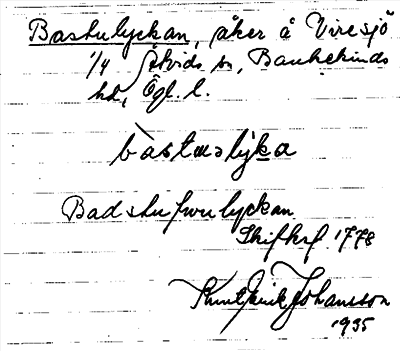 Bastulyckan, åker å Viresjö
1/4 Åtvids sn, Bankekinds
hd, Ögl. l.
bàstɯəly̆ka
Badstufvulyckan
Skifksf 1778
Knut Erik Johansson
1935